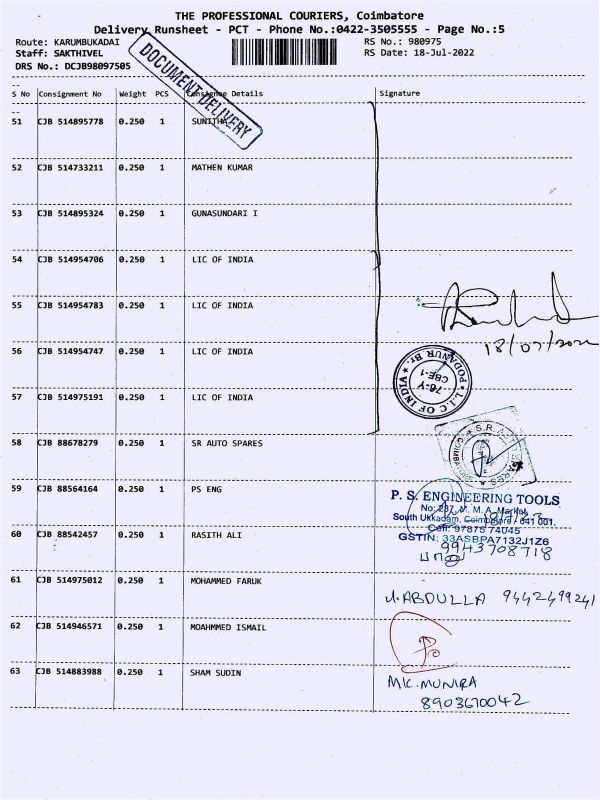 THE PROFESSIONAL COURIERS, Coimbatore
Delivery Runsheet - PCT - Phone No.:0422-3505555 - Page No.:5
Route: KARUMBUKADAI RS No.: 980975
Staff: SAKTHIVEL RS Date: 18-Jul-2022
DRS No.: DCJB98097505
DOCUMENT DELIVERY
S No Consignment No Weight PCS Consignee Details Signature
51 CJB 514895778 0.250 1 SUNITHA
52 CJB 514733211 0.250 1 MATHEN KUMAR
53 CJB 514895324 0.250 1 GUNASUNDARI I
54 CJB 514954706 0.250 1 LIC OF INDIA
55 CJB 514954783 0.250 1 LIC OF INDIA
18/07/2022
56 CJB 514954747 0.250 1 LIC OF INDIA
L.I.C OF INDIA PODANUR Br.
76-Y
CBE-1
57 CJB 514975191 0.250 1 LIC OF INDIA
58 CJB 88678279 0.250 1 SR AUTO SPARES
59 CJB 88564164 0.250 1 PS ENG
P. S. ENGINEERING TOOLS
No: 287, M. M. A. Market,
South Ukkadam, Coimbatore - 641 001.
Cell: 97875 74045
GSTIN: 33ASBPA7132J1Z6
60 CJB 88542457 0.250 1 RASITH ALI
9943708718
61 CJB 514975012 0.250 1 MOHAMMED FARUK
U.ABDULLA 9442499241
62 CJB 514946571 0.250 1 MOAHMMED ISMAIL
63 CJB 514883988 0.250 1 SHAM SUDIN
MK.MUNIRA
8903670042